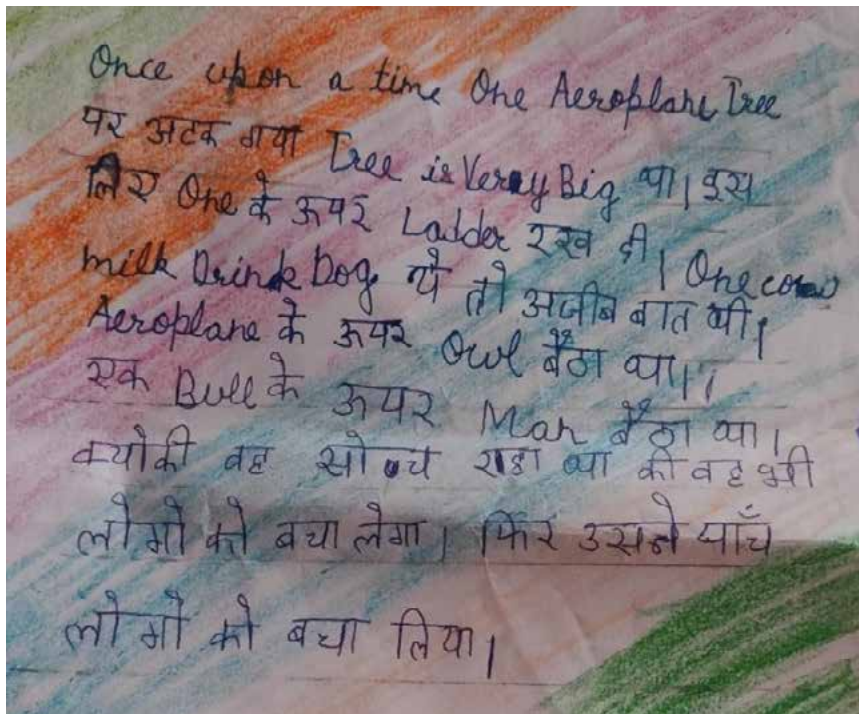 Once upon a time One Aeroplane Tree
पर अटक गया Tree is Veray Big था। इस
लिए One के ऊपर Ladder रख दी। One cow
milk Drink Dog ये तो अजीब बात थी।
Aeroplane के ऊपर Owl बैठा था।
एक Bull के ऊपर Man बैठा था।
क्योकी वह सोच रहा था की वह भी
लोगो को बचा लेगा। फिर उसने पाँच
लोगो को बचा लिया।